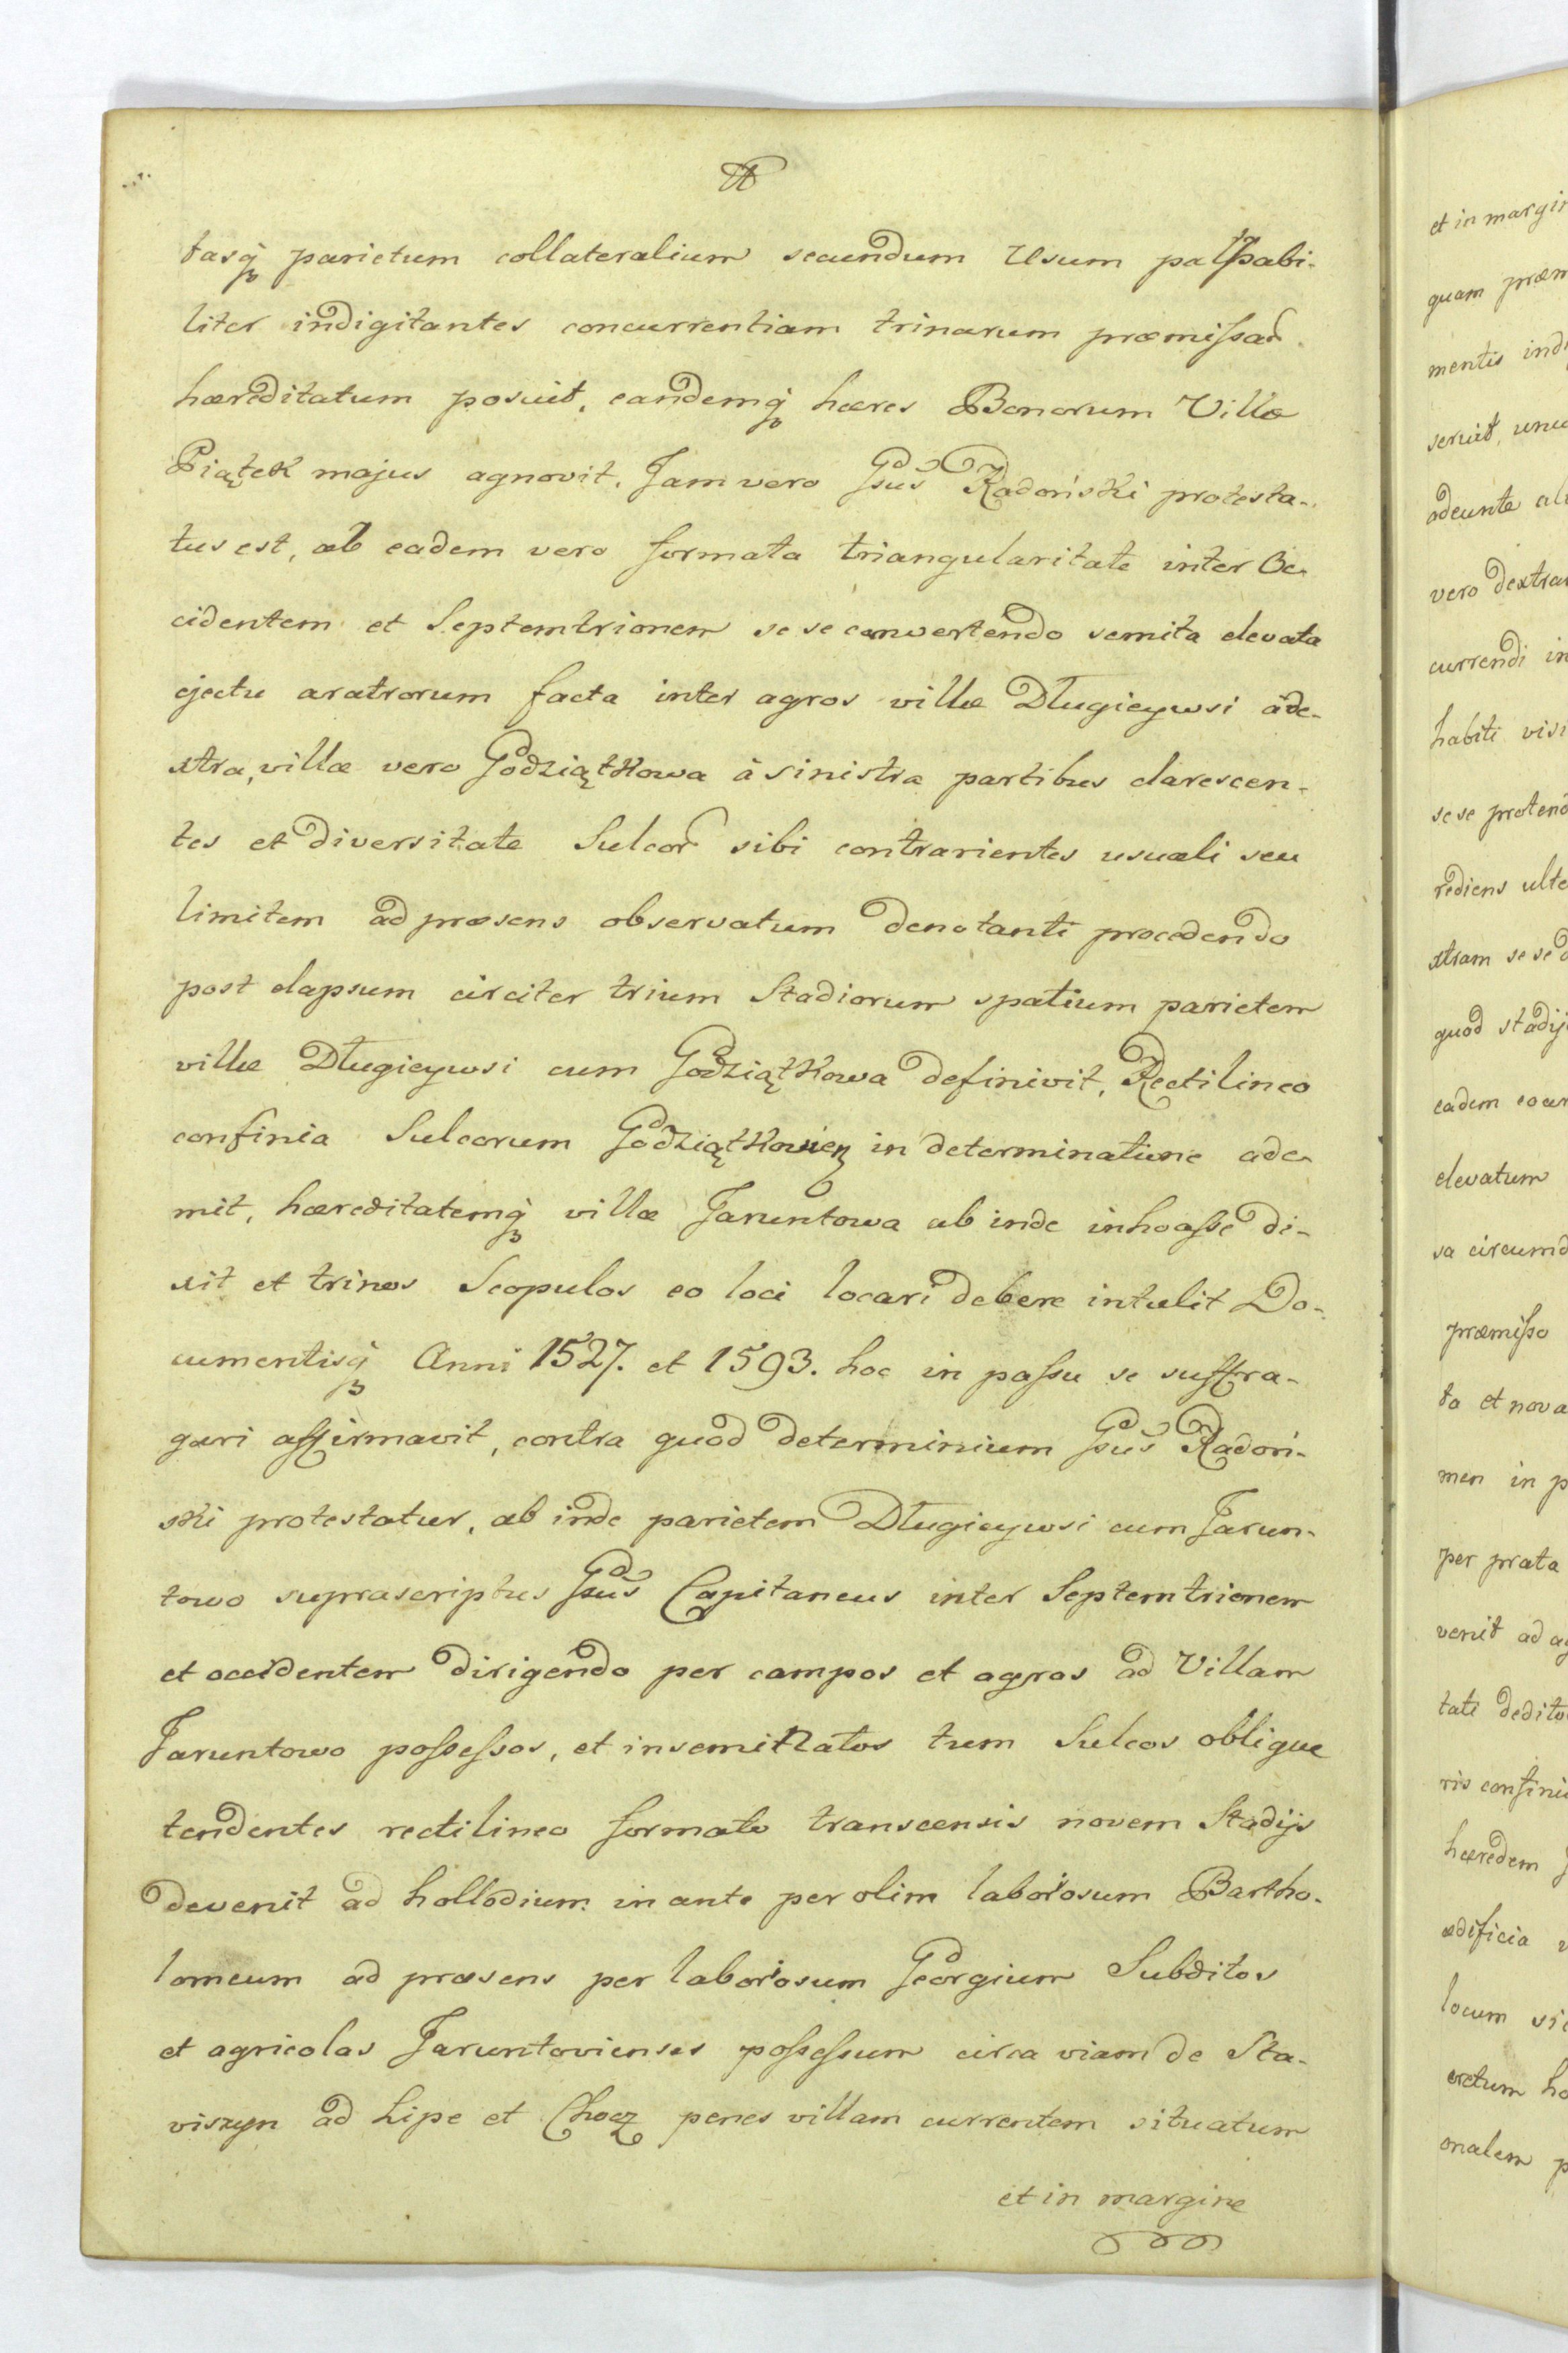 tasq́ parietum collateralium secundum Usum palpabi-
liter indigitantes concurrentiam trinarum præmissar̃
hæreditatum posuit, eandemq́ hæres Bonorum Villæ
Piątek majus agnovit. Jam vero Gsus Radoński protesta-
tus est, ab eadem vero formata triangularitate inter Oc-
cidentem et Septemtrionem se se convertendo semita elevata
ejectu aratrorum facta inter agros villæ Długieywsi á de-
xtra, villæ vero Godziątkowa á sinistra partibus clarescen-
tes et diversitate Sulcor̃ sibi contrarientes usuali seu
limitem ad præsens observatum denotanti procedendo
post elapsum circiter trium Stadiorum spatium parietem
villæ Długieywsi cum Godziątkowa definivit, Rectilineo
confinia Sulcorum Godziątkowien in determinatione ade-
mit, hæreditatemq́ villæ Jaruntowa ab inde inhoasse di-
xit et trinos Scopulos eo loci locari debere intulit Do-
cumentisq́ Anni 1527. et 1593. hoc in passu se suffra-
gari affirmavit, contra quod determinium Gsus Radoń-
ski protestatur, ab inde parietem Długieywsi cum Jarun-
towo suprascriptus Gsus Capitaneus inter Septemtrionem
et occidentem dirigendo per campos et agros ad Villam
Jaruntowo possessos, et inseminatos tum Sulcos oblique
tendentes rectilineo formato transcensis novem Stadijs
devenit ad hollodium in ante per olim laboriosum Bartho-
lomeum ad præsens per laboriosum Georgium Subditos
et agricolas Jaruntovienses possessum circa viam de Sta-
viszyn ad Lipe et Chocz penes villam currentem situatum
et in margine
et in margin
quam præm
mentis ind
servit, unu
adeunte al
vero dextra
currendi in
habiti visi
se se protend
rediens ulte
xtram se se d
quod stadij
eadem
elevatum
sa circumd
præmisso
ta et nova
men in p
per prata
venit ad ag
tati dedito
ris confini
hæredem
ædificia
locum
onalem p